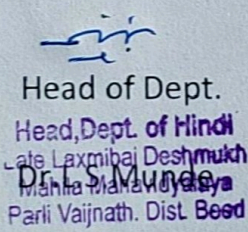 Head of Dept.
Head, Dept. of Hindi
Late Laxmibai Deshmukh
Dr. L S Munde
Mahila Mahavidyalaya
Parli Vaijnath. Dist. Beed